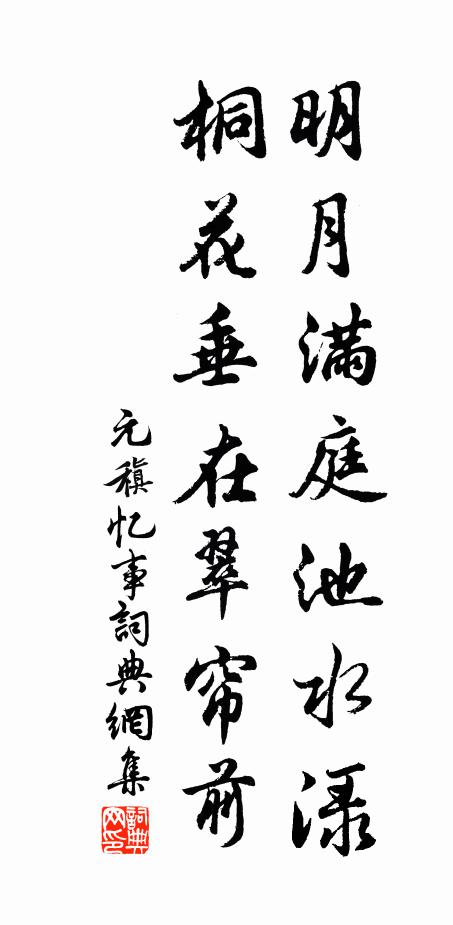 明月滿庭池水渌
桐花垂在翠帘前
元稹忆事詞典網集
詞典网印